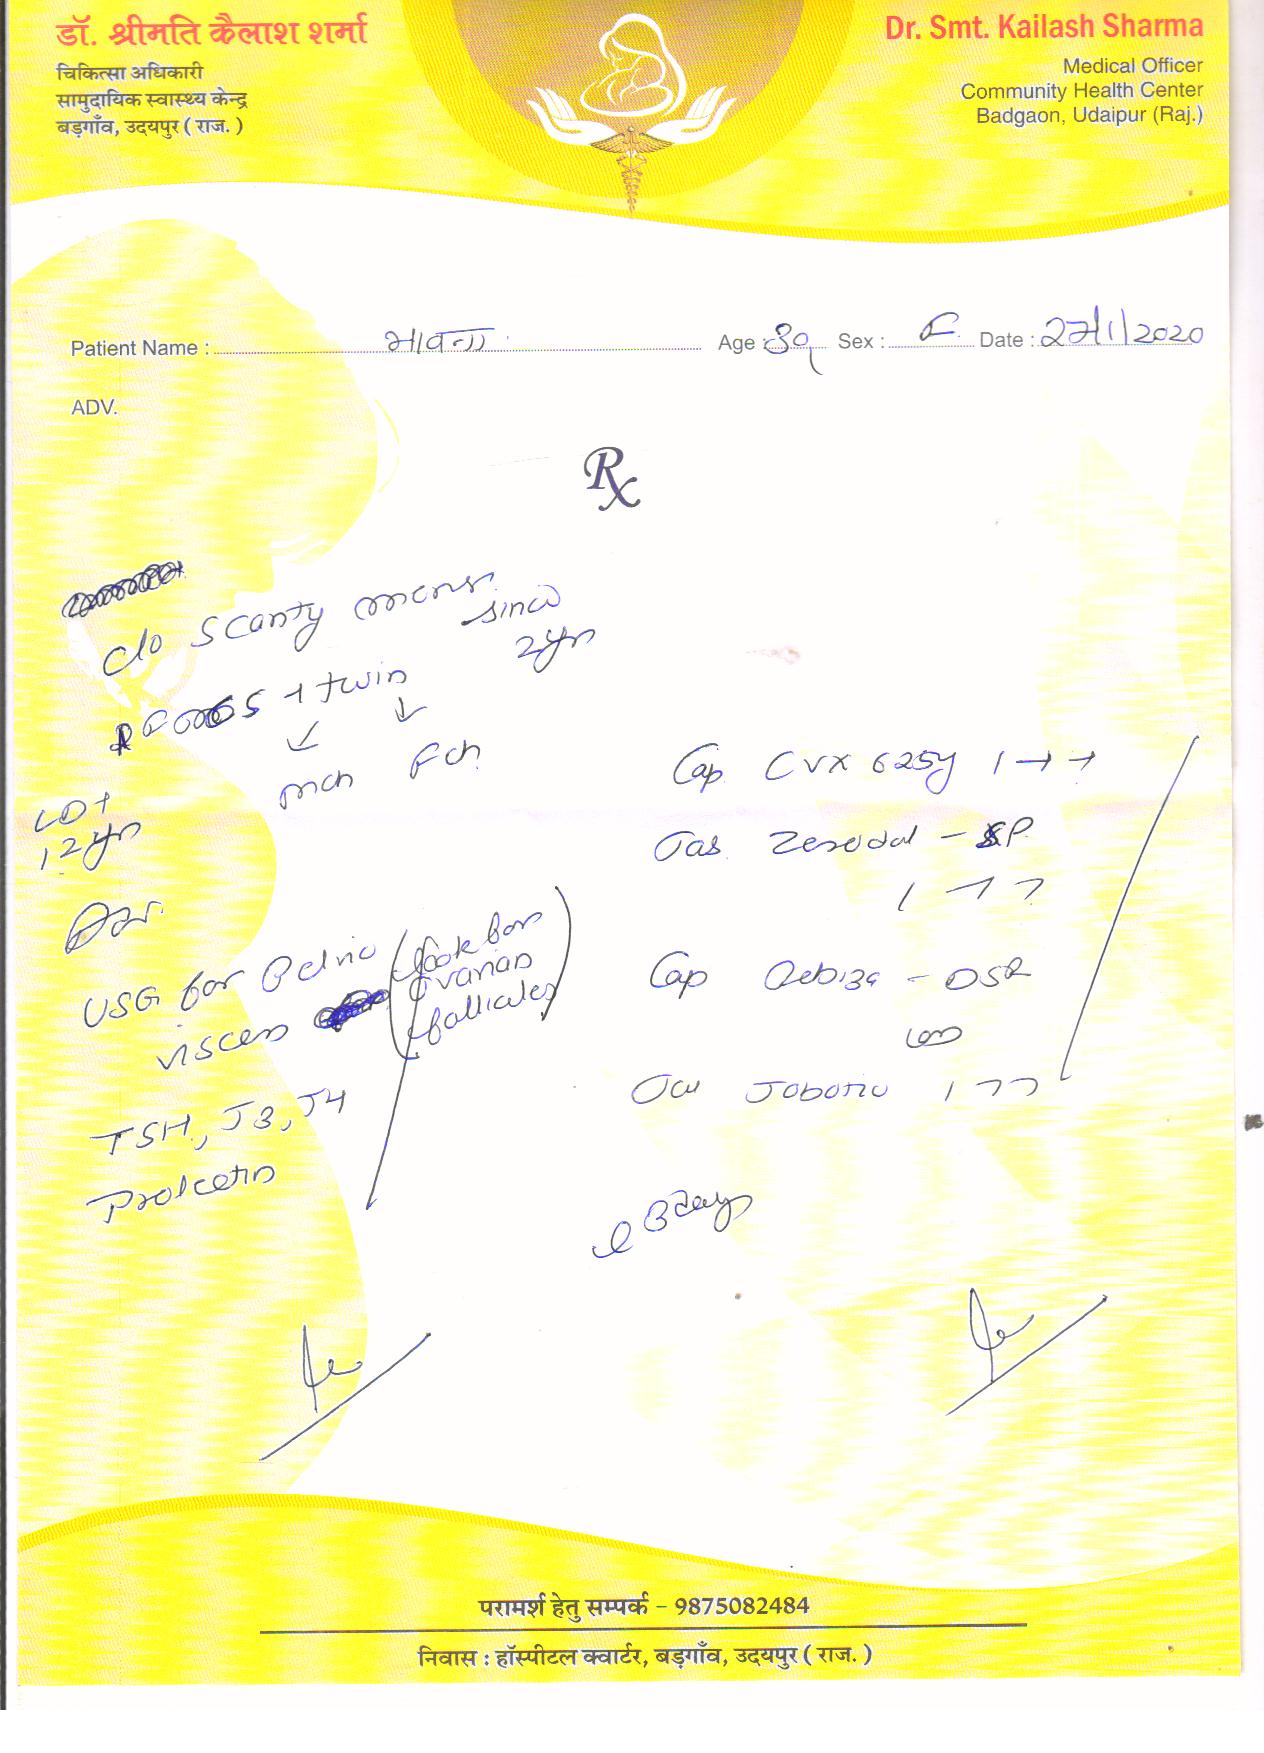 डॉ. श्रीमति कैलाश शर्मा
चिकित्सा अधिकारी
सामुदायिक स्वास्थ्य केन्द्र
बड़गाँव, उदयपुर ( राज. )
Dr. Smt. Kailash Sharma
Medical Officer
Community Health Center
Badgaon, Udaipur (Raj.)
Patient Name : भावना Age : Sex : F Date : 27/1/2020
ADV.
Rx
c/o scanty mens. since
2yr
+ twin
mch Fch
12yr
USG for Pelvic
viscera
(look for
ovarian
follicules)
TSH, T3, T4
Cap CVX 625g 1
Tab Zerodol - SP
1
Cap - DSR
Tab 1
3 days
परामर्श हेतु सम्पर्क – 9875082484
निवास : हॉस्पीटल क्वार्टर, बड़गाँव, उदयपुर ( राज. )